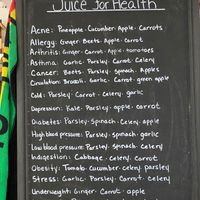 Juice for Health
Acne: Pineapple. Cucumber. Apple. Carrots
Allergy: Ginger. Beets. Apple. Carrot
Arthritis: Ginger. Carrot. Apple. tomatoes
Asthma: Garlic. Parsley. Carrot. Celery
Cancer: Beets. Parsley. Spinach. Apples
Circulation: Broccoli. Garlic. Carrot. green apple
Cold: Parsley. Carrot. Celery. garlic
Depression: Kale. Parsley. apple. carrot
Diabetes: Parsley. Spinach. Celery. apple
High blood pressure: Parsley. spinach. garlic
Low blood pressure: Parsley. Spinach. celery
Indigestion: Cabbage. celery. carrot
Obesity: Tomato. Cucumber. celery. parsley
Stress: Garlic. Parsley. Carrot. celery
Underweight: Ginger. Carrot. apple